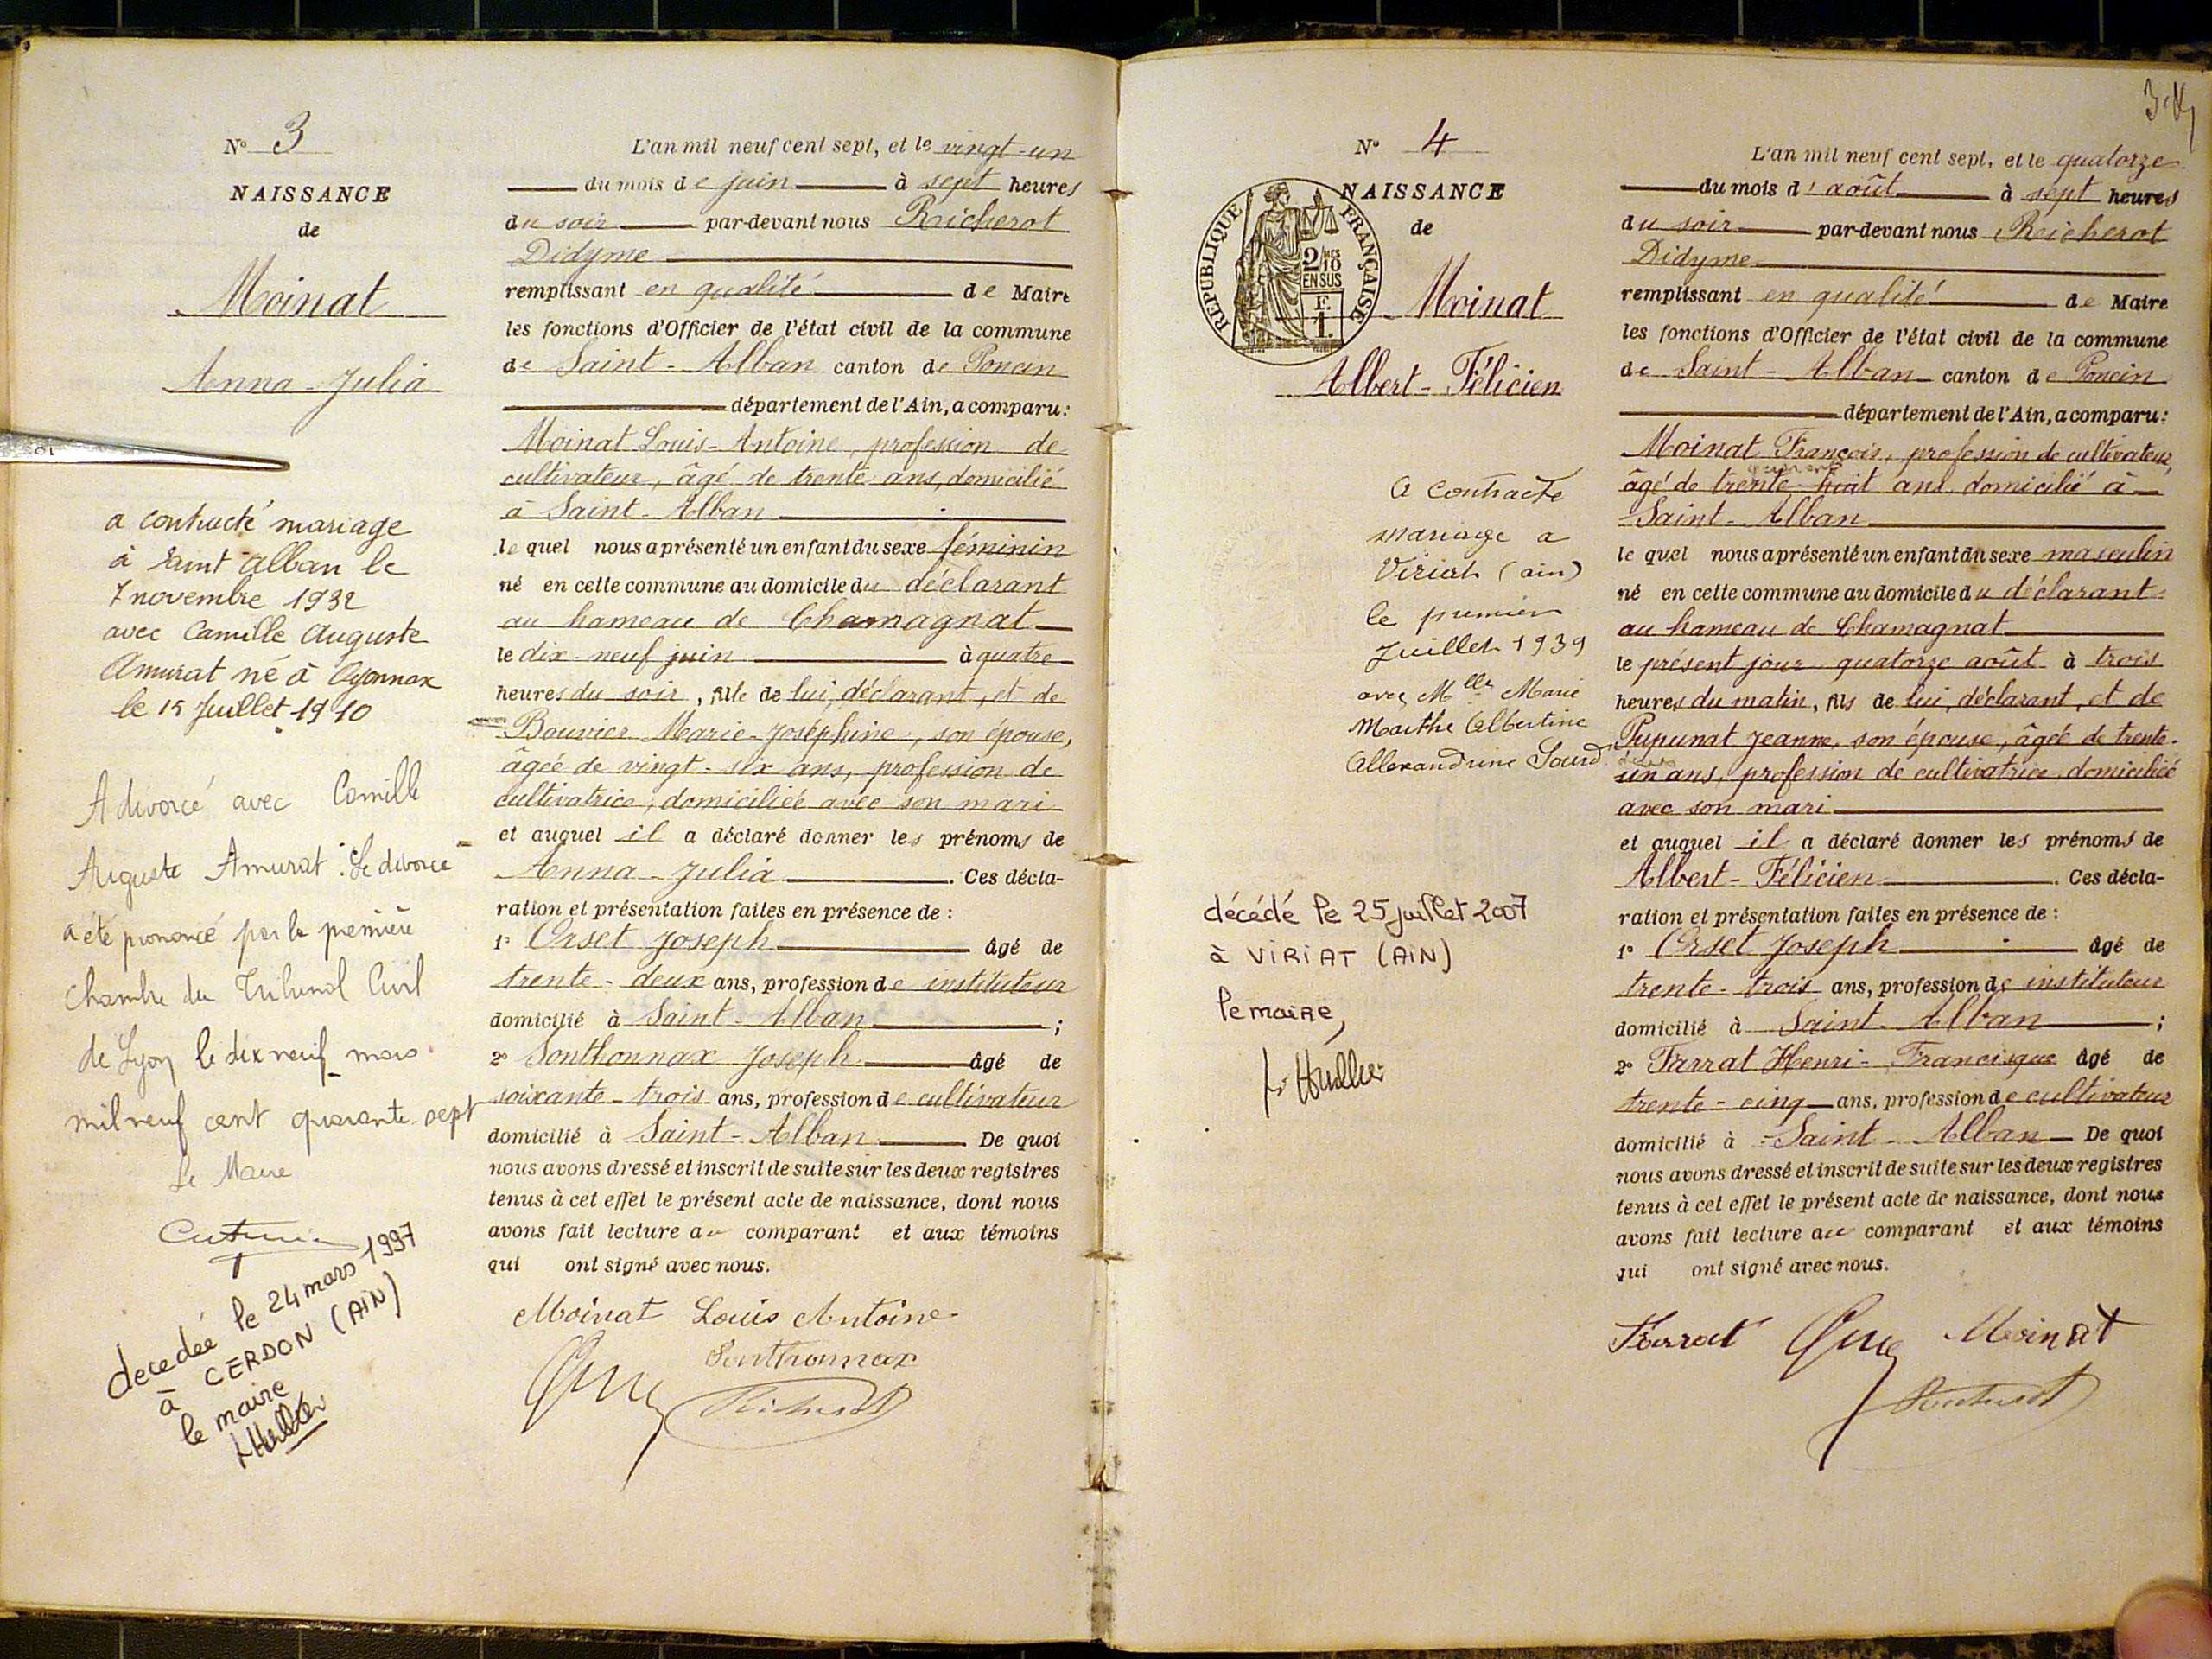 N° 3
NAISSANCE
de
Moinat
Anna-Julia
a contracté mariage
à Saint Alban le
7 novembre 1932
avec Camille Auguste
Amurat né à Oyonnax
le 15 Juillet 1910
A divorcé avec Camille
Auguste Amurat. Le divorce
a été prononcé par la première
Chambre du Tribunal Civil
de Lyon le dix neuf mars
mil neuf cent quarante sept
Le Maire
décédée le 24 mars 1997
à CERDON (AIN)
le maire
L'an mil neuf cent sept, et le vingt-un
du mois de juin à sept heures
du soir par-devant nous Reicherot
Didyme
remplissant en qualité de Maire
les fonctions d'Officier de l'état civil de la commune
de Saint-Alban canton de Poncin
département de l'Ain, a comparu:
Moinat Louis-Antoine, profession de
cultivateur, âgé de trente ans, domicilié
à Saint-Alban
lequel nous a présenté un enfant du sexe féminin
né en cette commune au domicile du déclarant
au hameau de Chamagnat
le dix-neuf juin à quatre
heures du soir, fille de lui, déclarant, et de
Bouvier Marie-Joséphine, son épouse,
âgée de vingt-six ans, profession de
cultivatrice, domiciliée avec son mari
et auquel il a déclaré donner les prénoms de
Anna-Julia. Ces décla-
ration et présentation faites en présence de :
1° Orset Joseph âgé de
trente-deux ans, profession de instituteur
domicilié à Saint-Alban ;
2° Sonthonnax Joseph âgé de
soixante-trois ans, profession de cultivateur
domicilié à Saint-Alban De quoi
nous avons dressé et inscrit de suite sur les deux registres
tenus à cet effet le présent acte de naissance, dont nous
avons fait lecture au comparant et aux témoins
qui ont signé avec nous.
Moinat Louis Antoine
Sonthonnax
N° 4
NAISSANCE
de
REPUBLIQUE FRANÇAISE
2/10 EN SUS
F. 1.
Moinat
Albert-Félicien
a contracté
mariage a
Viriat (ain)
le premier
Juillet 1939
avec Mlle Marie
Marthe Albertine
Allexandrine Sourd
décédé le 25 juillet 2007
à VIRIAT (AIN)
le maire,
L'an mil neuf cent sept, et le quatorze
du mois d'août à sept heures
du soir par-devant nous Reicherot
Didyme
remplissant en qualité de Maire
les fonctions d'Officier de l'état civil de la commune
de Saint-Alban canton de Poncin
département de l'Ain, a comparu:
Moinat François, profession de cultivateur,
âgé de trente-huit ans domicilié à
Saint-Alban
lequel nous a présenté un enfant du sexe masculin
né en cette commune au domicile du déclarant
au hameau de Chamagnat
le présent jour quatorze août à trois
heures du matin, fils de lui, déclarant, et de
Pupunat Jeanne, son épouse, âgée de trente-
un ans, profession de cultivatrice, domiciliée
avec son mari
et auquel il a déclaré donner les prénoms de
Albert-Félicien. Ces décla-
ration et présentation faites en présence de :
1° Orset Joseph âgé de
trente-trois ans, profession de instituteur
domicilié à Saint-Alban ;
2° Tarrat Henri-Francisque âgé de
trente-cinq ans, profession de cultivateur
domicilié à Saint-Alban De quoi
nous avons dressé et inscrit de suite sur les deux registres
tenus à cet effet le présent acte de naissance, dont nous
avons fait lecture au comparant et aux témoins
qui ont signé avec nous.
Tarrat Moinat